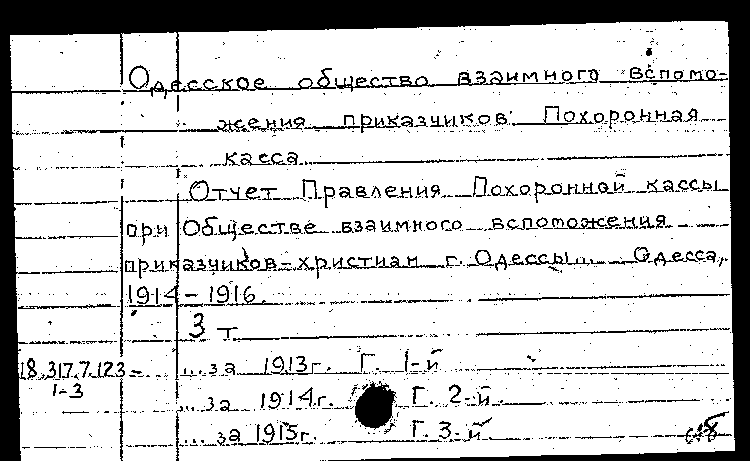 Одесское общество взаимного вспомо-
жения приказчиков. Похоронная
касса
Отчет Правления Похоронной кассы
при Обществе взаимного вспоможения
приказчиков-христиан г. Одессы... Одесса,
1914-1916.
3 т.
18.317.7.123- ...за 1913г. Г. 1-й
1-3
...за 1914г. Г. 2-й.
...за 1915г. Г. 3-й.